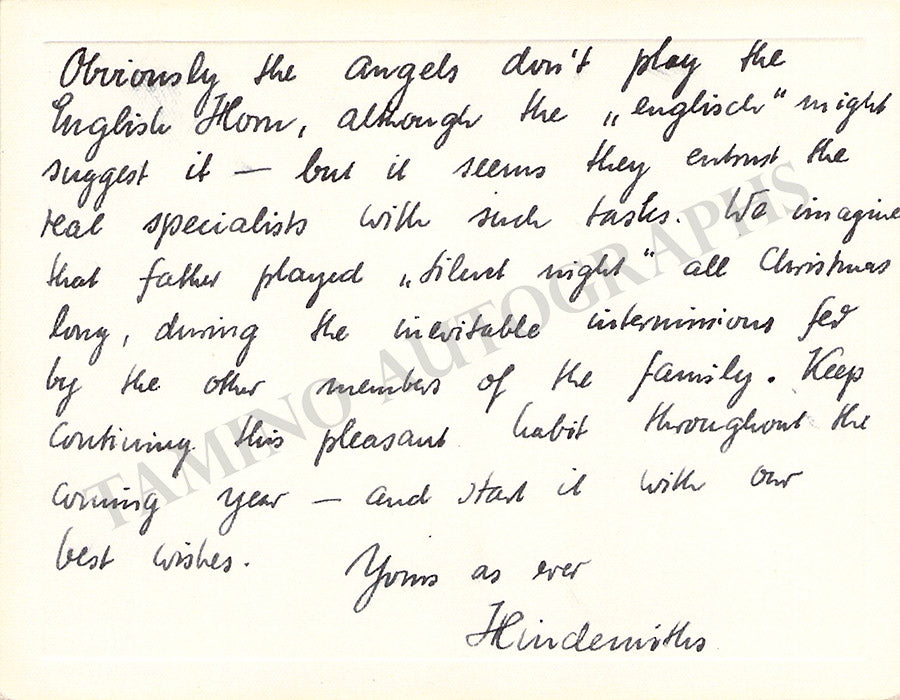 Obviously the angels don't play the
English Horn, although the „englisch“ might
suggest it — but it seems they entrust the
real specialists with such tasks. We imagine
that father played „Silent night“ all Christmas
long, during the inevitable intermissions fed
by the other members of the family. Keep
continuing this pleasant habit throughout the
coming year — and start it with our
best wishes.
Yours as ever
Hindemiths
TAMINO AUTOGRAPHS